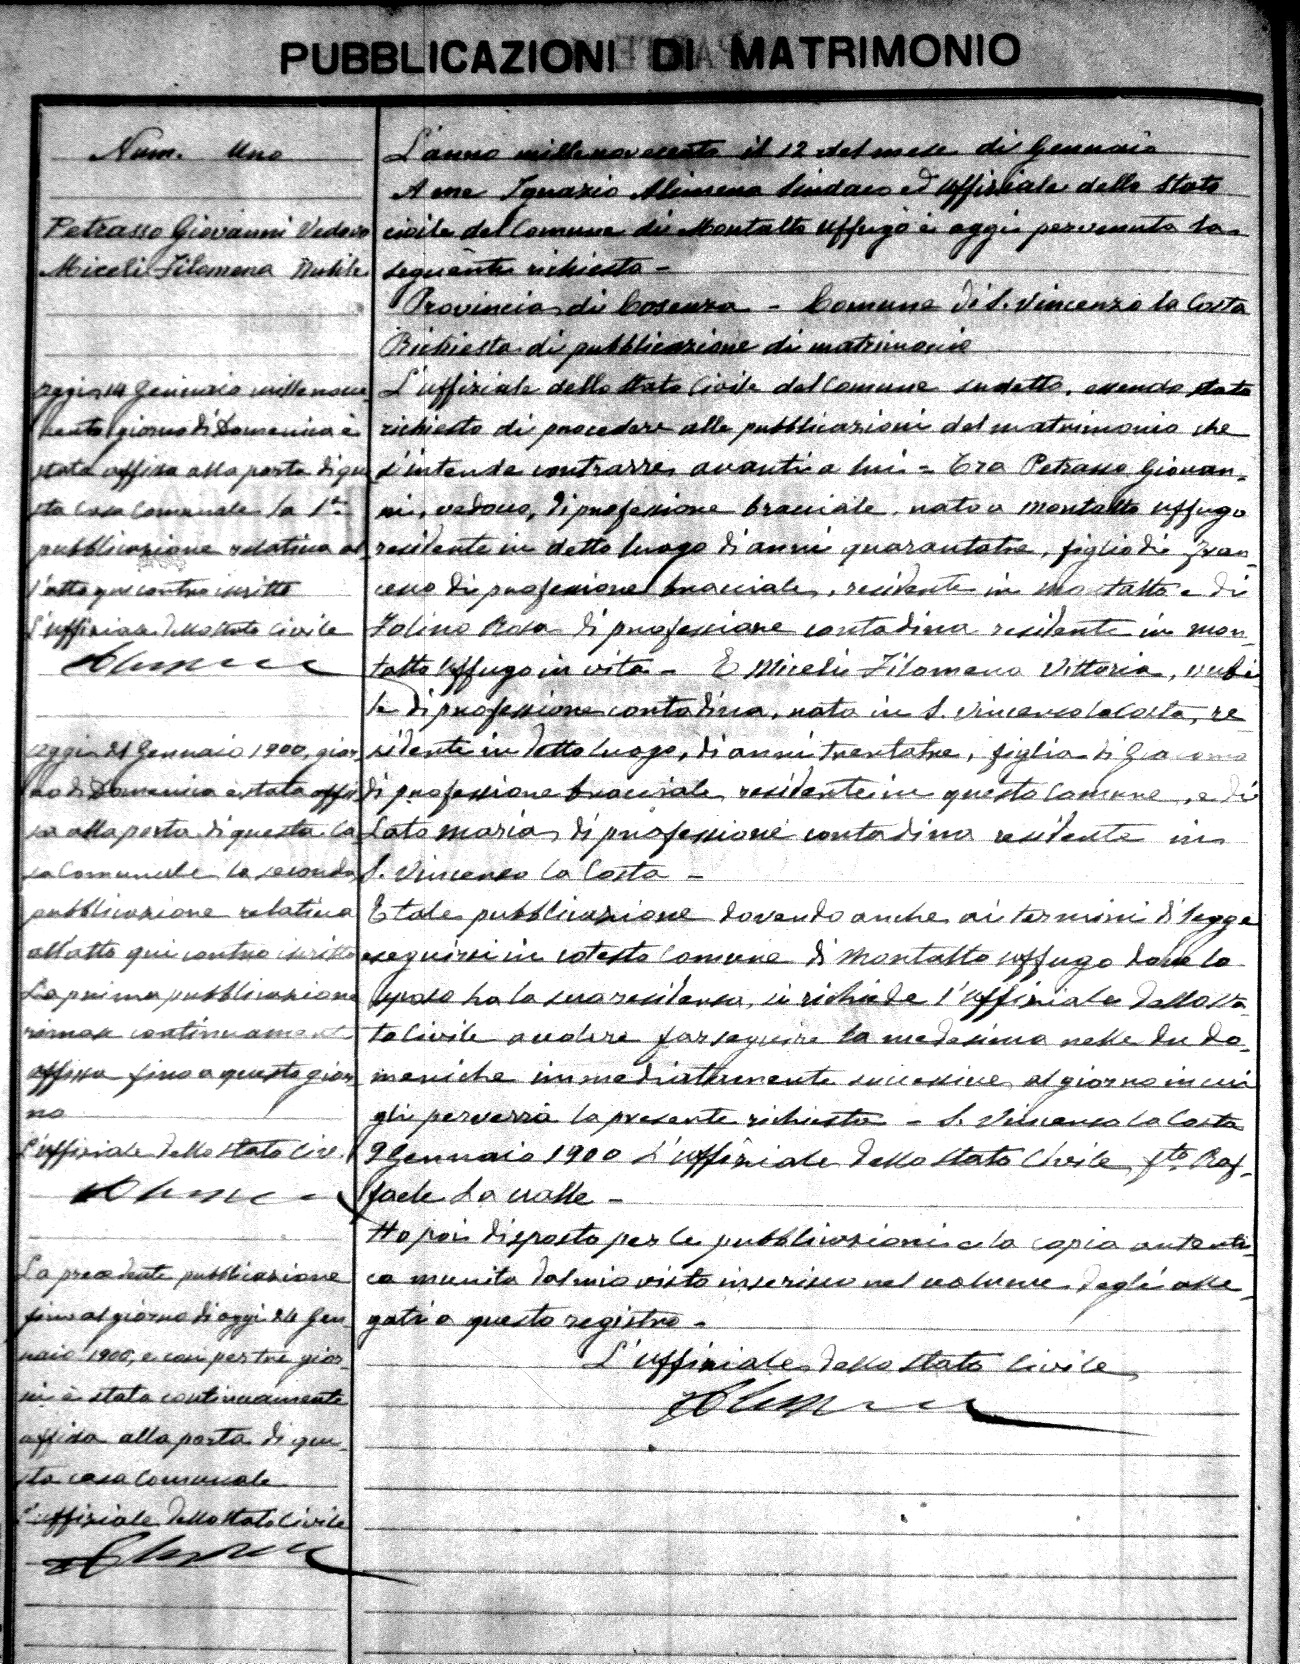 PUBBLICAZIONI DI MATRIMONIO
Num. Uno
Petrasso Giovanni Vedovo
Miceli Filomena Nubile
Oggi 14 Gennaio millenove
cento giorno di Domenica è
stata affissa alla porta di que
sta Casa Comunale la 1ª
pubblicazione relativa al
l'atto qui contro iscritto
L'uffiziale dello Stato Civile
Oggi 21 Gennaio 1900, gior
no di Domenica è stata affis
sa alla porta di questa Ca
sa Comunale la seconda
pubblicazione relativa
all'atto qui contro iscritto
La prima pubblicazione
rimase continuament
affissa fino a questo gior
no
L'uffiziale dello Stato Civ.
La precedente pubblicazione
fino al giorno di oggi 24 Gen
naio 1900, e così per tre gior
ni è stata continuamente
affissa alla porta di que
sta casa Comunale
L'uffiziale dello Stato Civile
L'anno millenovecento il 12 del mese di Gennaio
A me Ignazio Alimena Sindaco ed Uffiziale dello Stato
civile del Comune di Montalto Uffugo è oggi pervenuta la
seguente richiesta -
Provincia di Cosenza - Comune di S. Vincenzo la Costa
Richiesta di pubblicazione di matrimonio
L'uffiziale dello Stato Civile del Comune sudetto, essendo stato
richiesto di procedere alle pubblicazioni del matrimonio che
s'intende contrarre avanti a lui = Tra Petrasso Giovan-
ni, vedovo, di professione bracciale, nato a Montalto Uffugo
residente in detto luogo di anni quarantatre, figlio di Fran-
cesco di professione bracciale, residente in Montalto e di
Folino Rosa di professione contadina residente in Mon-
talto Uffugo in vita - E Miceli Filomena Vittoria, nubi
le di professione contadina, nata in S. Vincenzo la Costa, re
sidente in detto luogo, di anni trentatre, figlia di Giacomo
di professione bracciale residente in questo Comune, e di
Lato Maria, di professione contadina residente in
S. Vincenzo la Costa -
E tale pubblicazione dovendo anche ai termini di legge
eseguirsi in cotesto Comune di Montalto Uffugo dove lo
sposo ha la sua residenza, si richiede l'Uffiziale dello Sta
to Civile a voler far seguire la medesima nelle due do-
meniche immediatamente successive al giorno in cui
gli perverrà la presente richiesta - S. Vincenzo la Costa
9 Gennaio 1900 L'uffiziale dello Stato Civile fto Raf-
faele La Valle -
Ho poi disposto per le pubblicazioni e la copia autenti-
ca munita dal mio visto inserisco nel volume degli alle-
gati a questo registro -
L'uffiziale dello Stato Civile